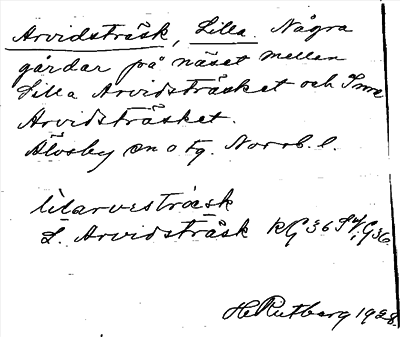 Arvidsträsk, Lilla. Några
gårdar på näset mellan
Lilla Arvidsträsket och Inre
Arvidsträsket.
Älvsby sn o tg. Norrb. l.
lìlarvestrask
L. Arvidsträsk RG 36
H Rutberg 1928.